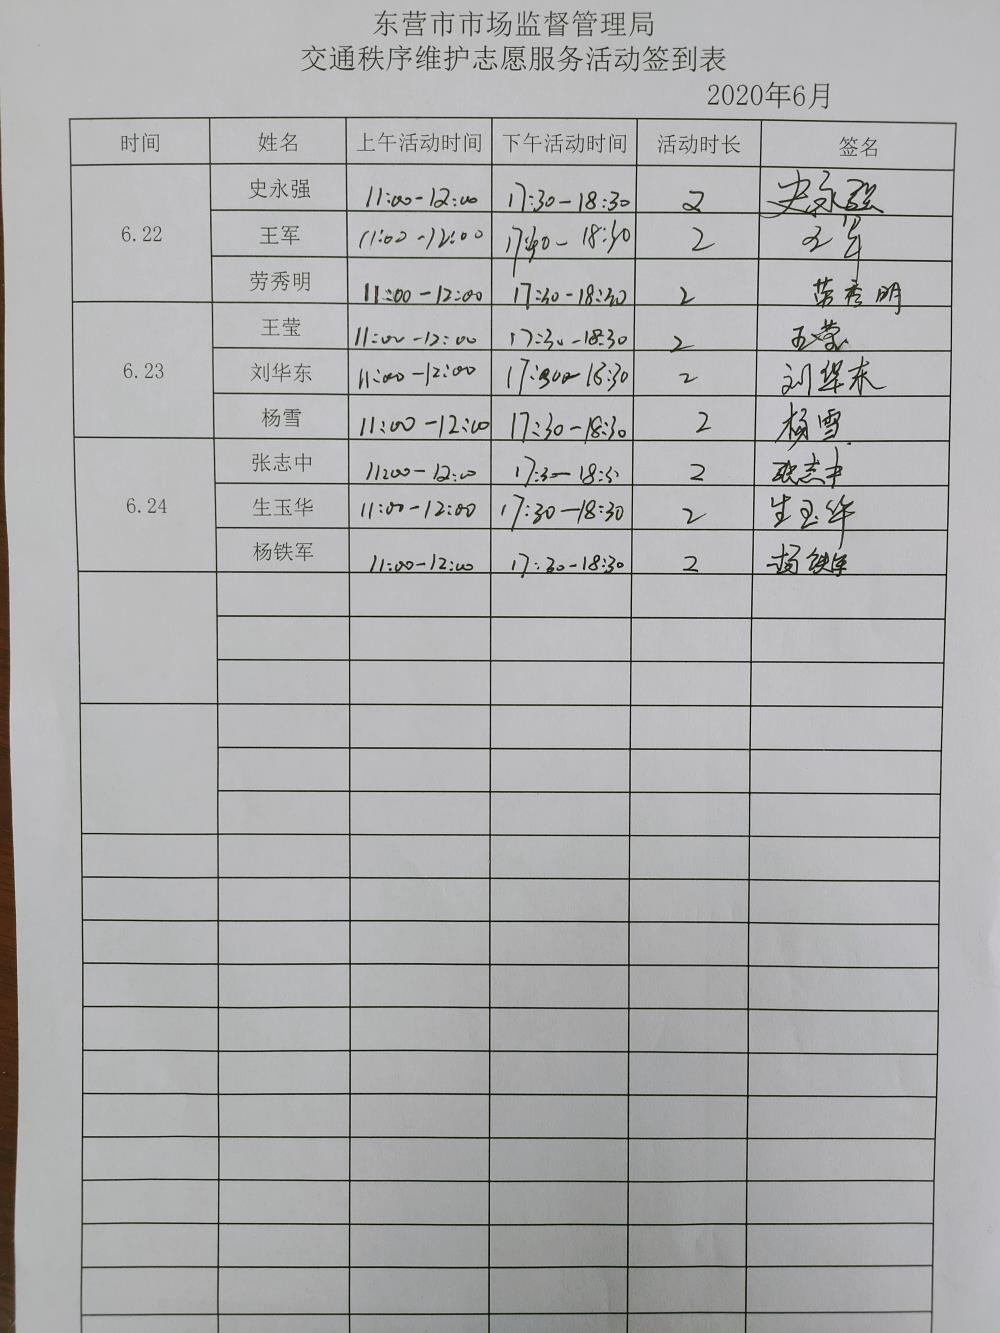 东营市市场监督管理局
交通秩序维护志愿服务活动签到表
2020年6月
时间 姓名 上午活动时间 下午活动时间 活动时长 签名
6.22 史永强 11:00-12:00 17:30-18:30 2 史永强
王军 11:00-12:00 17:30-18:30 2 王军
劳秀明 11:00-12:00 17:30-18:30 2 劳秀明
6.23 王莹 11:00-12:00 17:30-18:30 2 王莹
刘华东 11:00-12:00 2 刘华东
杨雪 11:00-12:00 17:30-18:30 2 杨雪
6.24 张志中 11:00-12:00 17:30-18:30 2 张志中
生玉华 11:00-12:00 17:30-18:30 2 生玉华
杨铁军 11:00-12:00 17:30-18:30 2 杨铁军